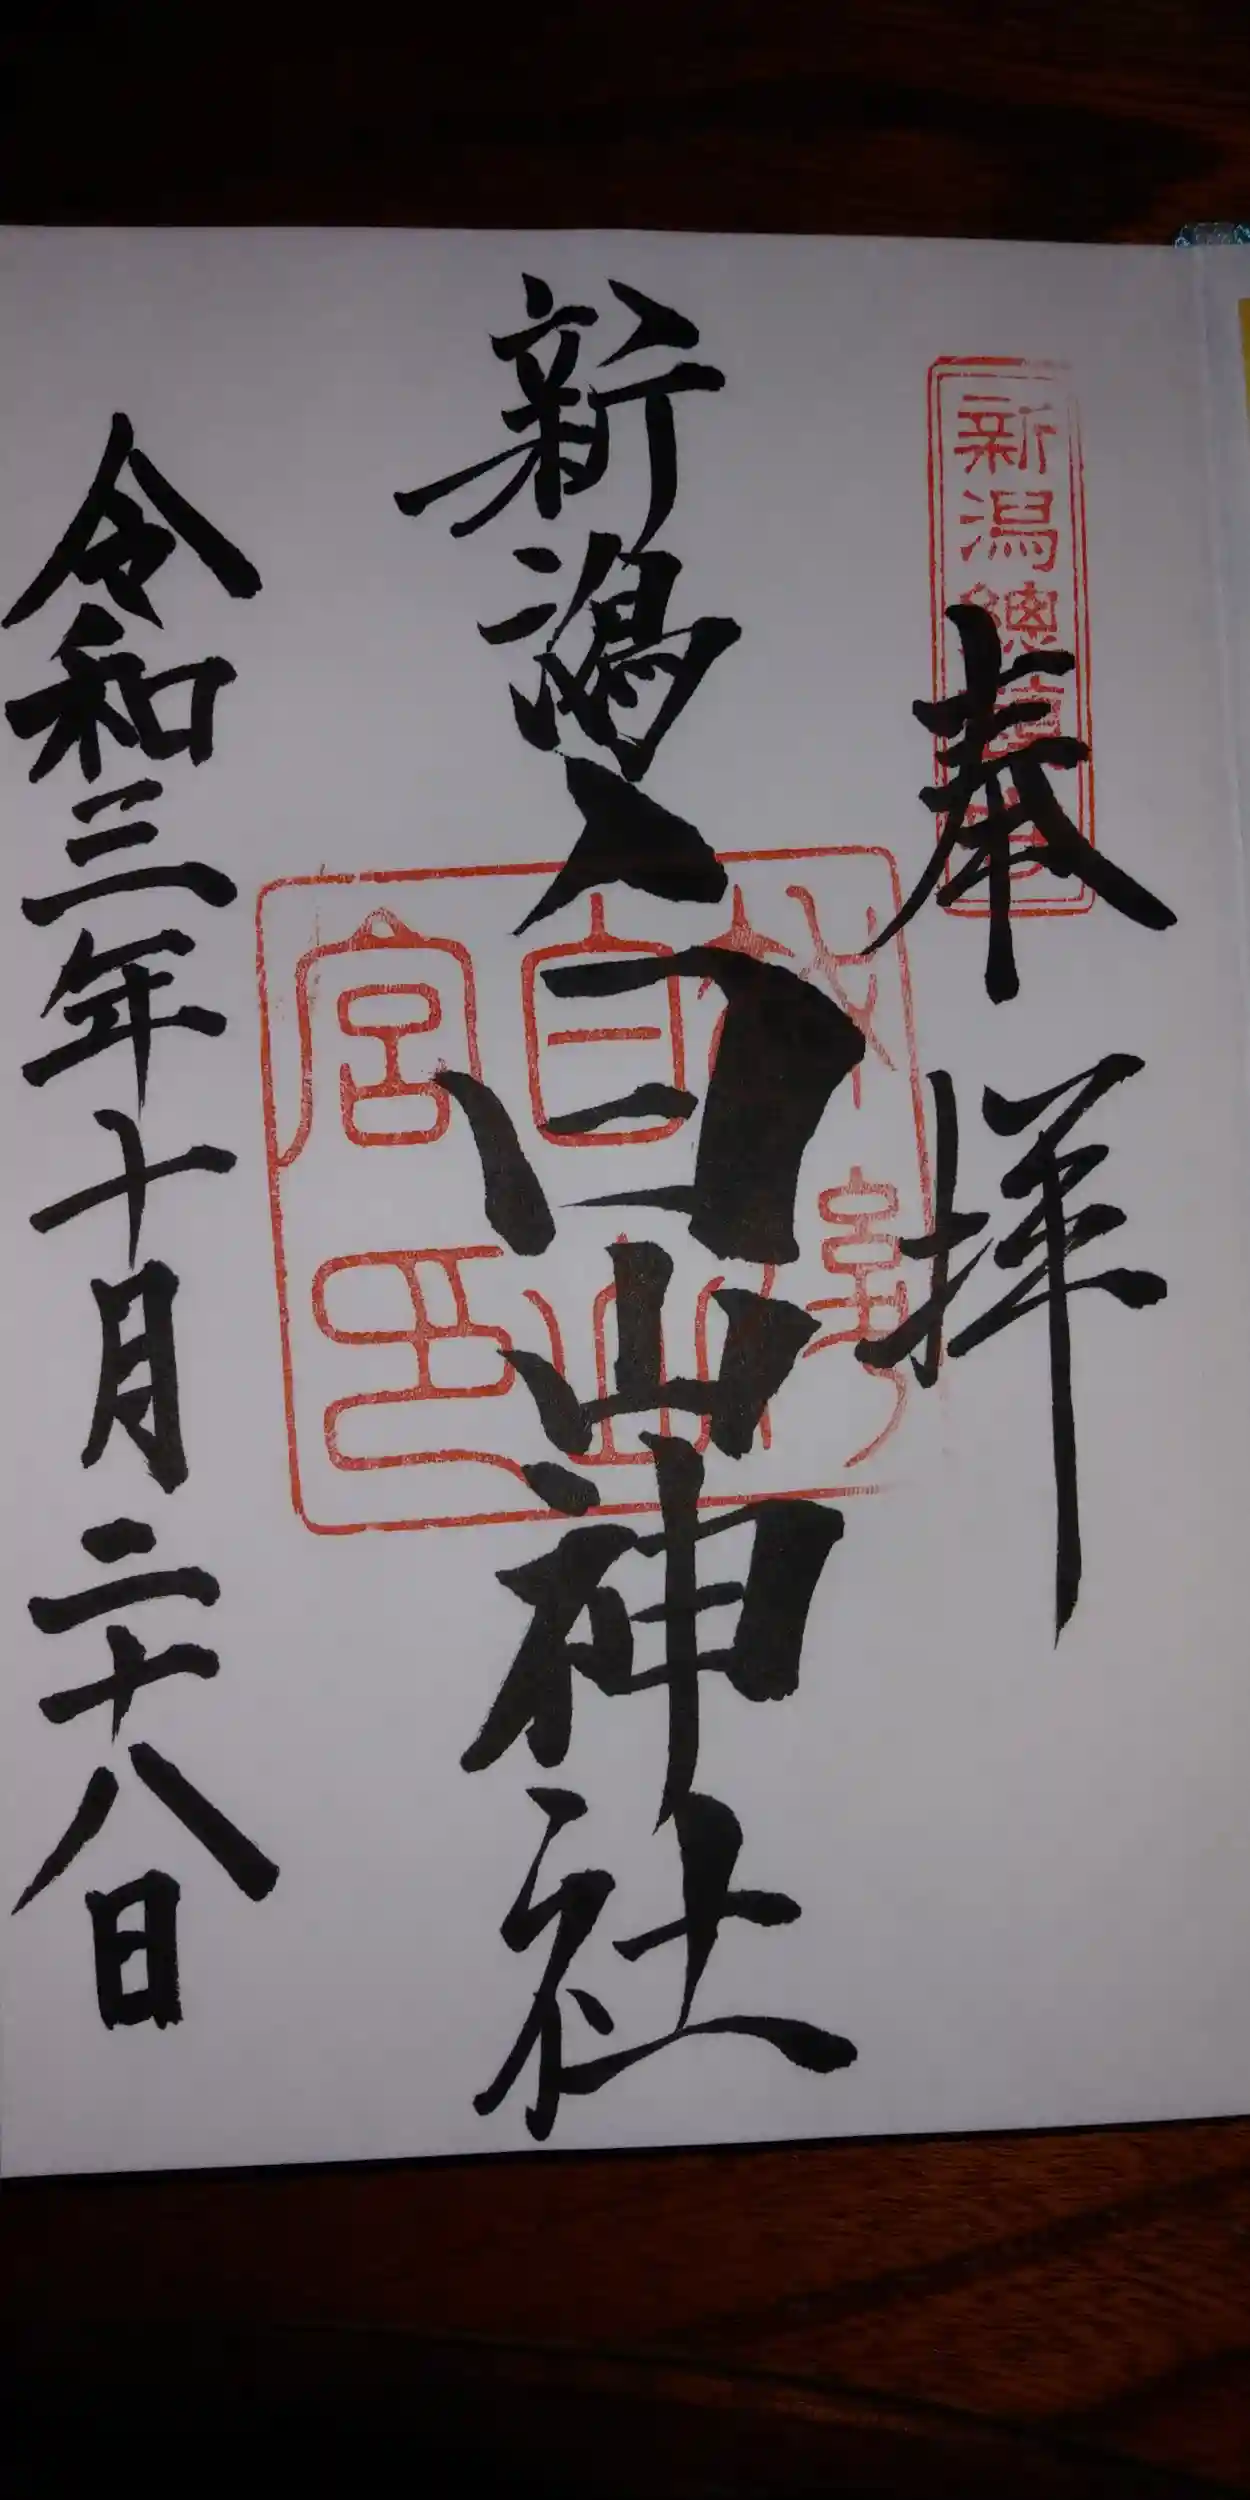 新潟總鎮守
奉拝
新潟白山神社
令和三年十月二十八日